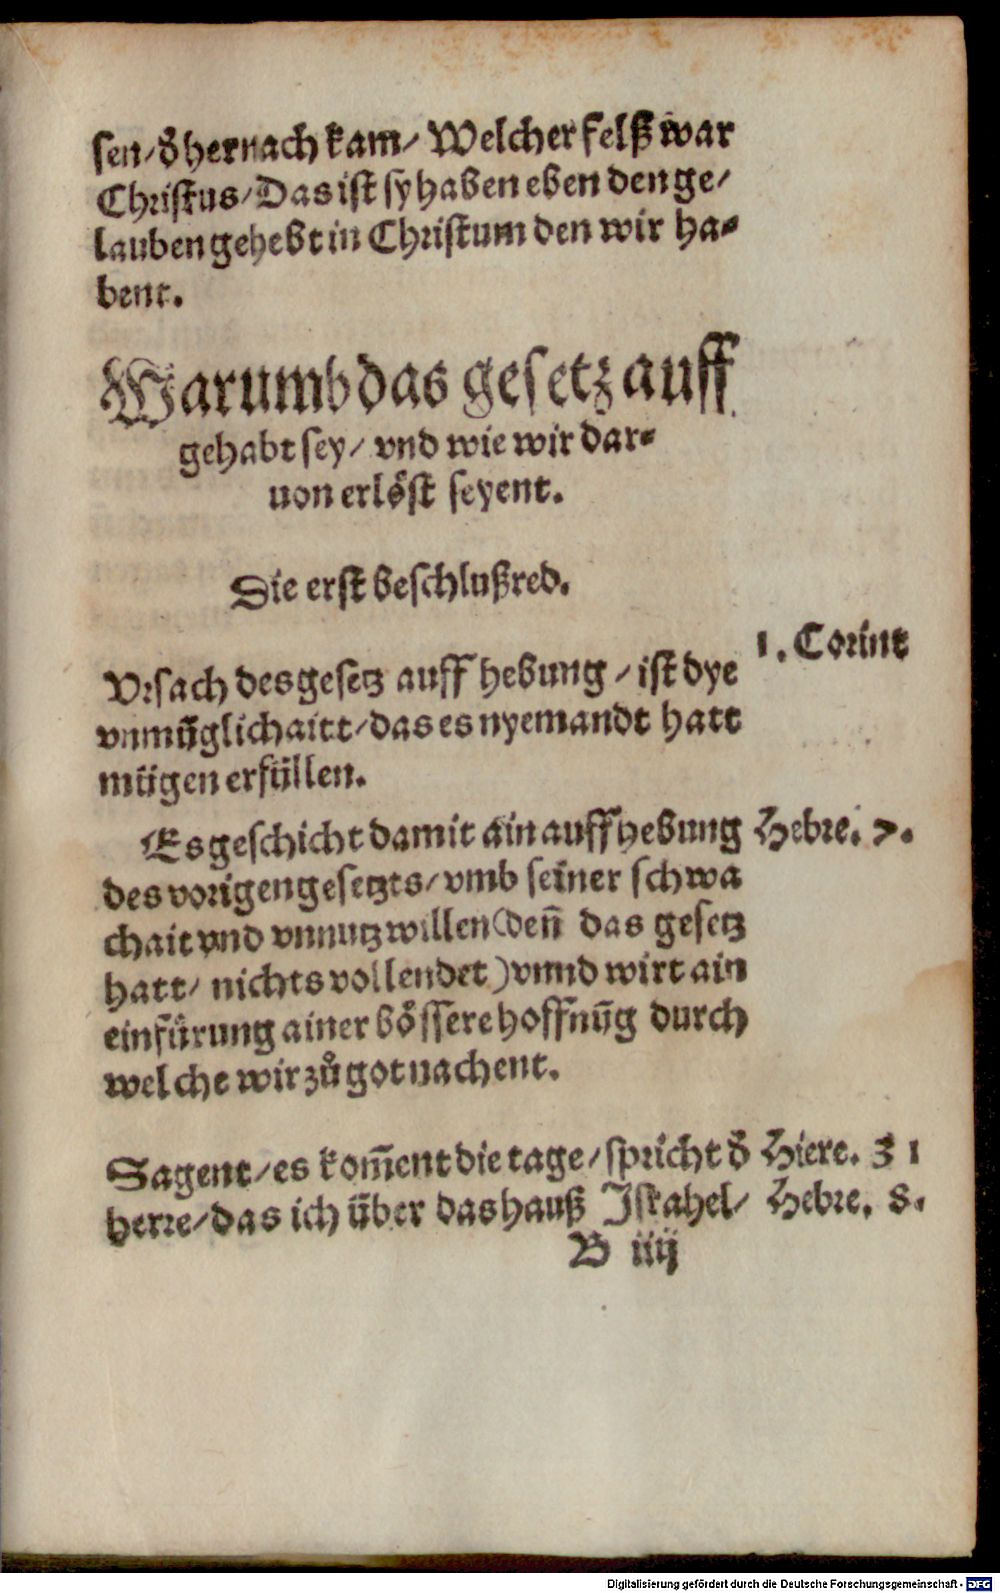 sen/ď hernach kam/ Welcher felß war
Christus/Das ist sy haben eben den ge/
lauben gehebt in Christum den wir ha⸗
bent.
Warumb das gesetz auff
gehabt sey/ vnd wie wir dar⸗
uon erlöst seyent.
Die erst beschlußred.
Vrsach des gesetz auff hebung / ist dye
vnmüglichaitt/das es nyemandt hatt
mügen erfüllen.
1. Corint
Es geschicht damit ain auff hebung
des vorigen gesetzts/ vmb seiner schwa
chait vnd vnnutz willen (deñ das gesetz
hatt/ nichts vollendet) vnnd wirt ain
einfürung ainer bössere hoffnūg durch
welche wir zů got nachent.
Hebre. 7.
Sagent/es kom̄ent die tage/spricht ď
herre/das ich über das hauß Israhel/
Hiere. 31
Hebre. 8.
B iiij
Digitalisierung gefördert durch die Deutsche Forschungsgemeinschaft - DFG